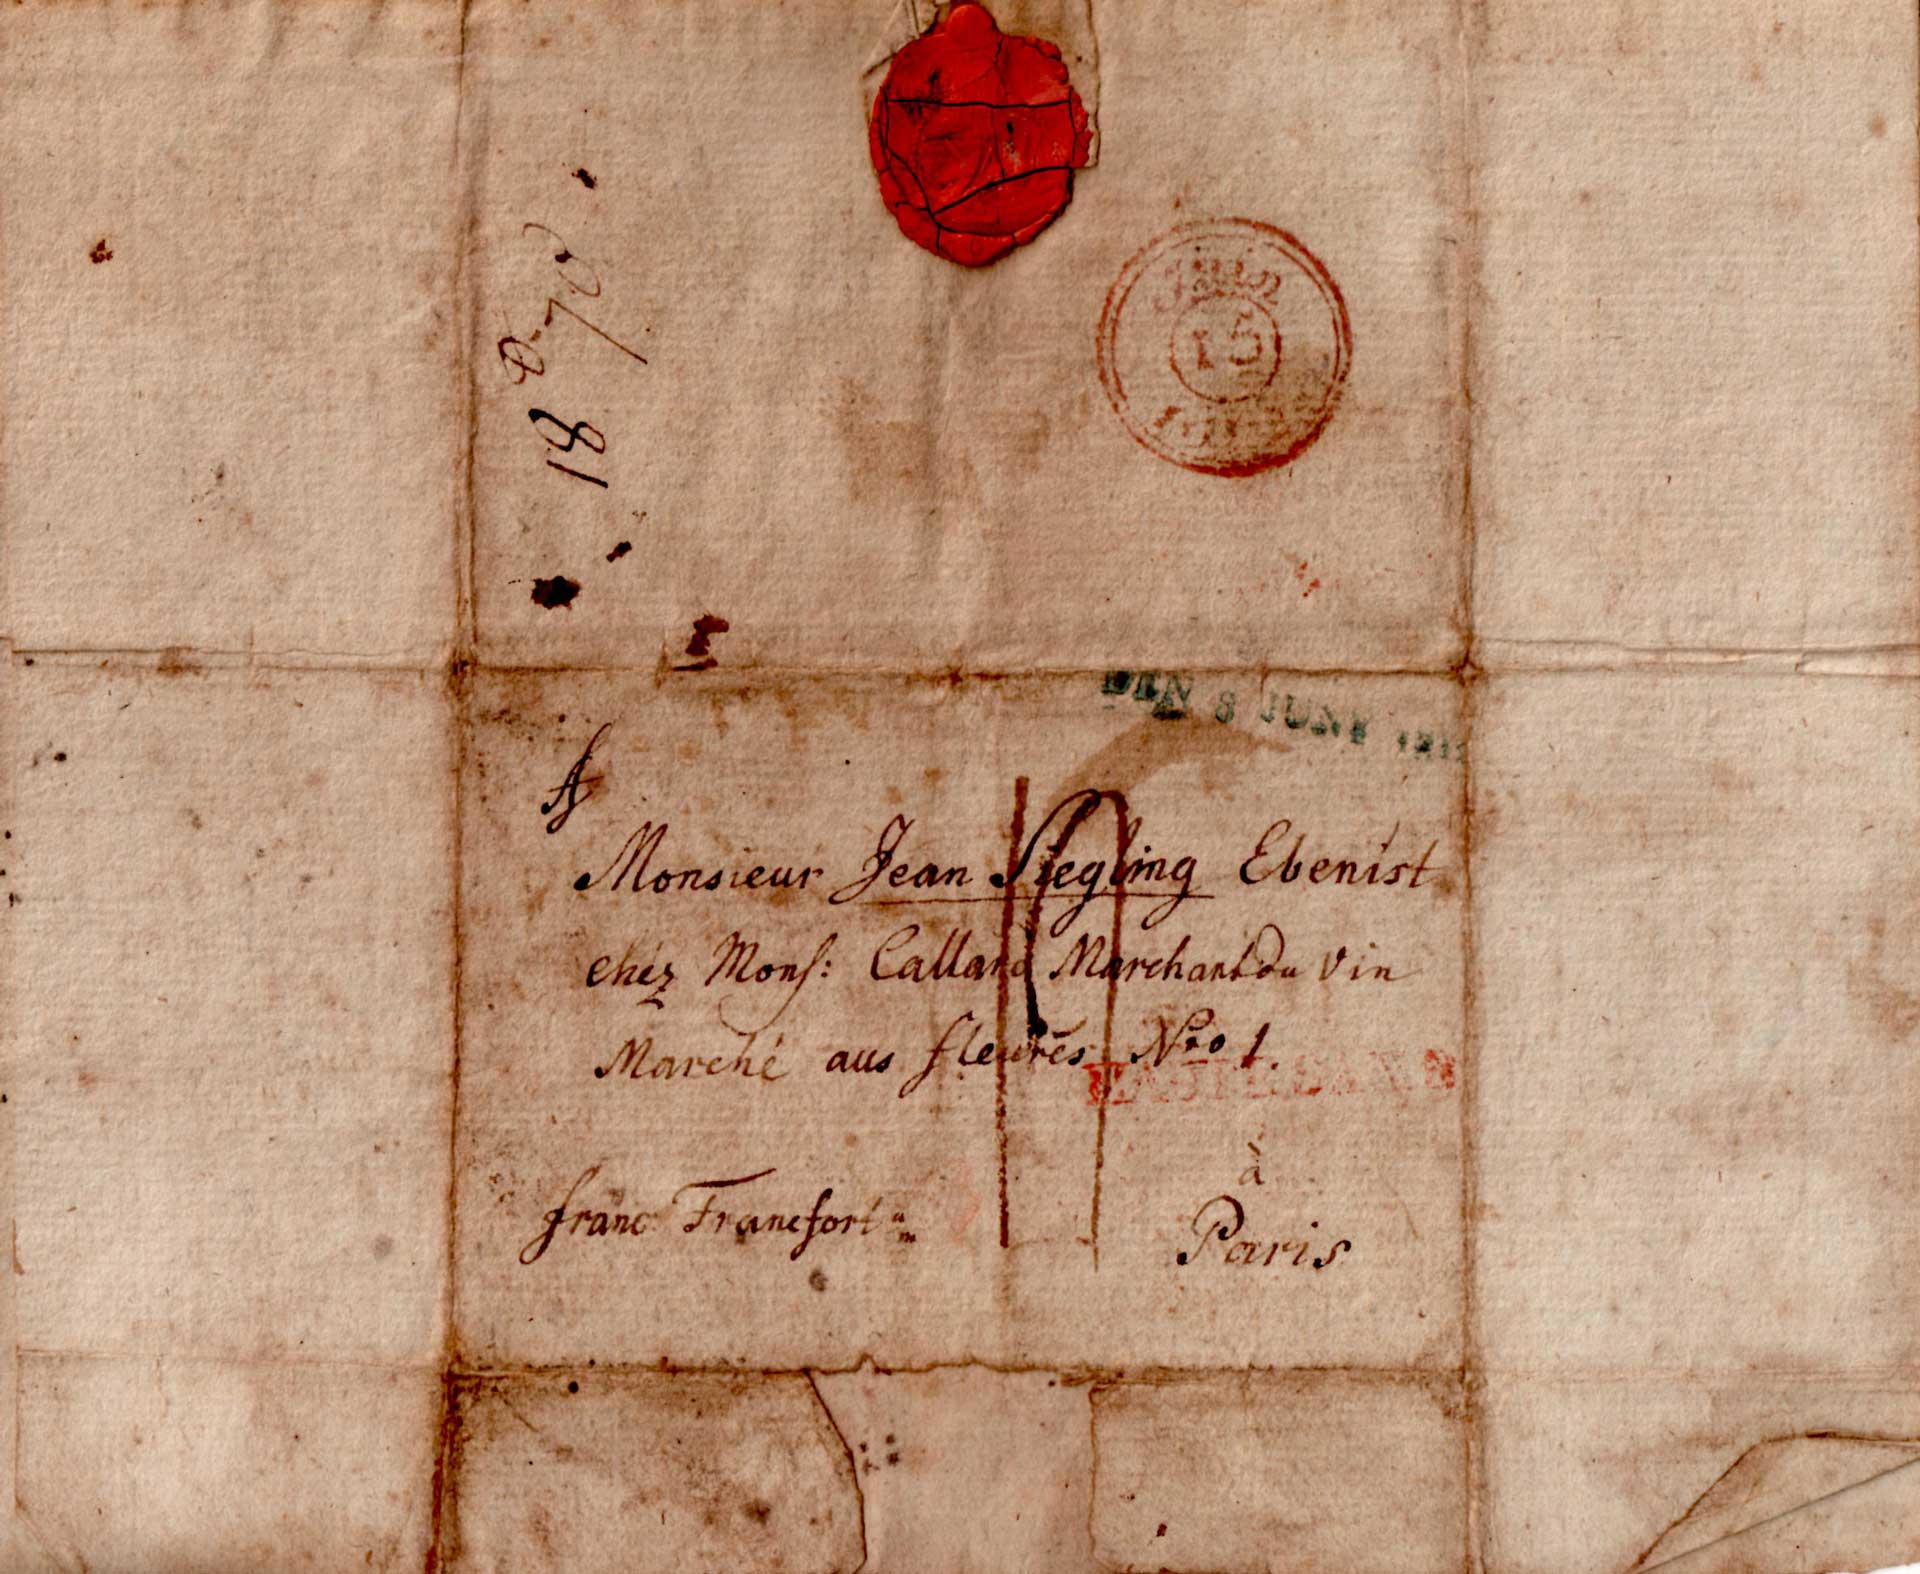 18
Juin
15
DEN 8 JUNY
A
Monsieur Jean Siegling Ebenist
chéz Mons: Callard Marchant du Vin
Marché aus fleurés Nro 1.
à
franc Francfort a/m
Paris